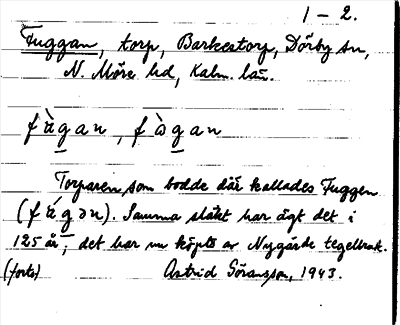 1 – 2.
Fuggan, torp, Barkestorp, Dörby sn,
N. Möre hd, Kalm. län.
fàgan, fàgan
Torparen, som bodde där kallades Fuggen
(fágən). Samma släkt har ägt det i
125 år; det har nu köpts av Nygärde tegelbruk.
(forts) Astrid Göransson, 1943.